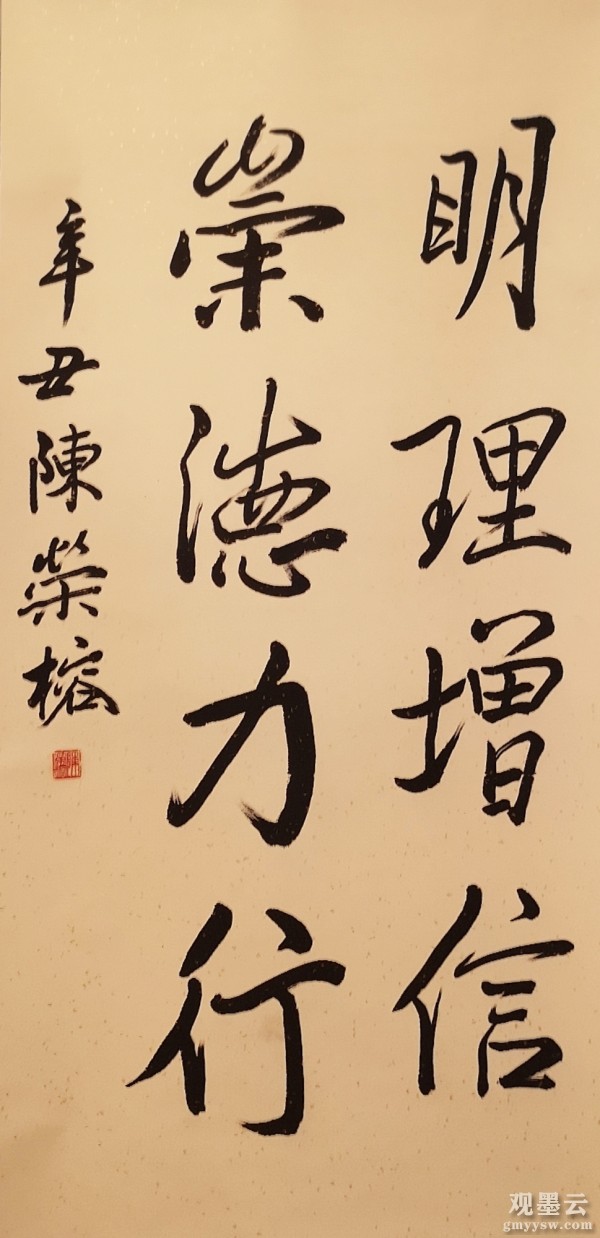 明理增信
崇德力行
辛丑陳榮榕
观墨云
gmyysw.com